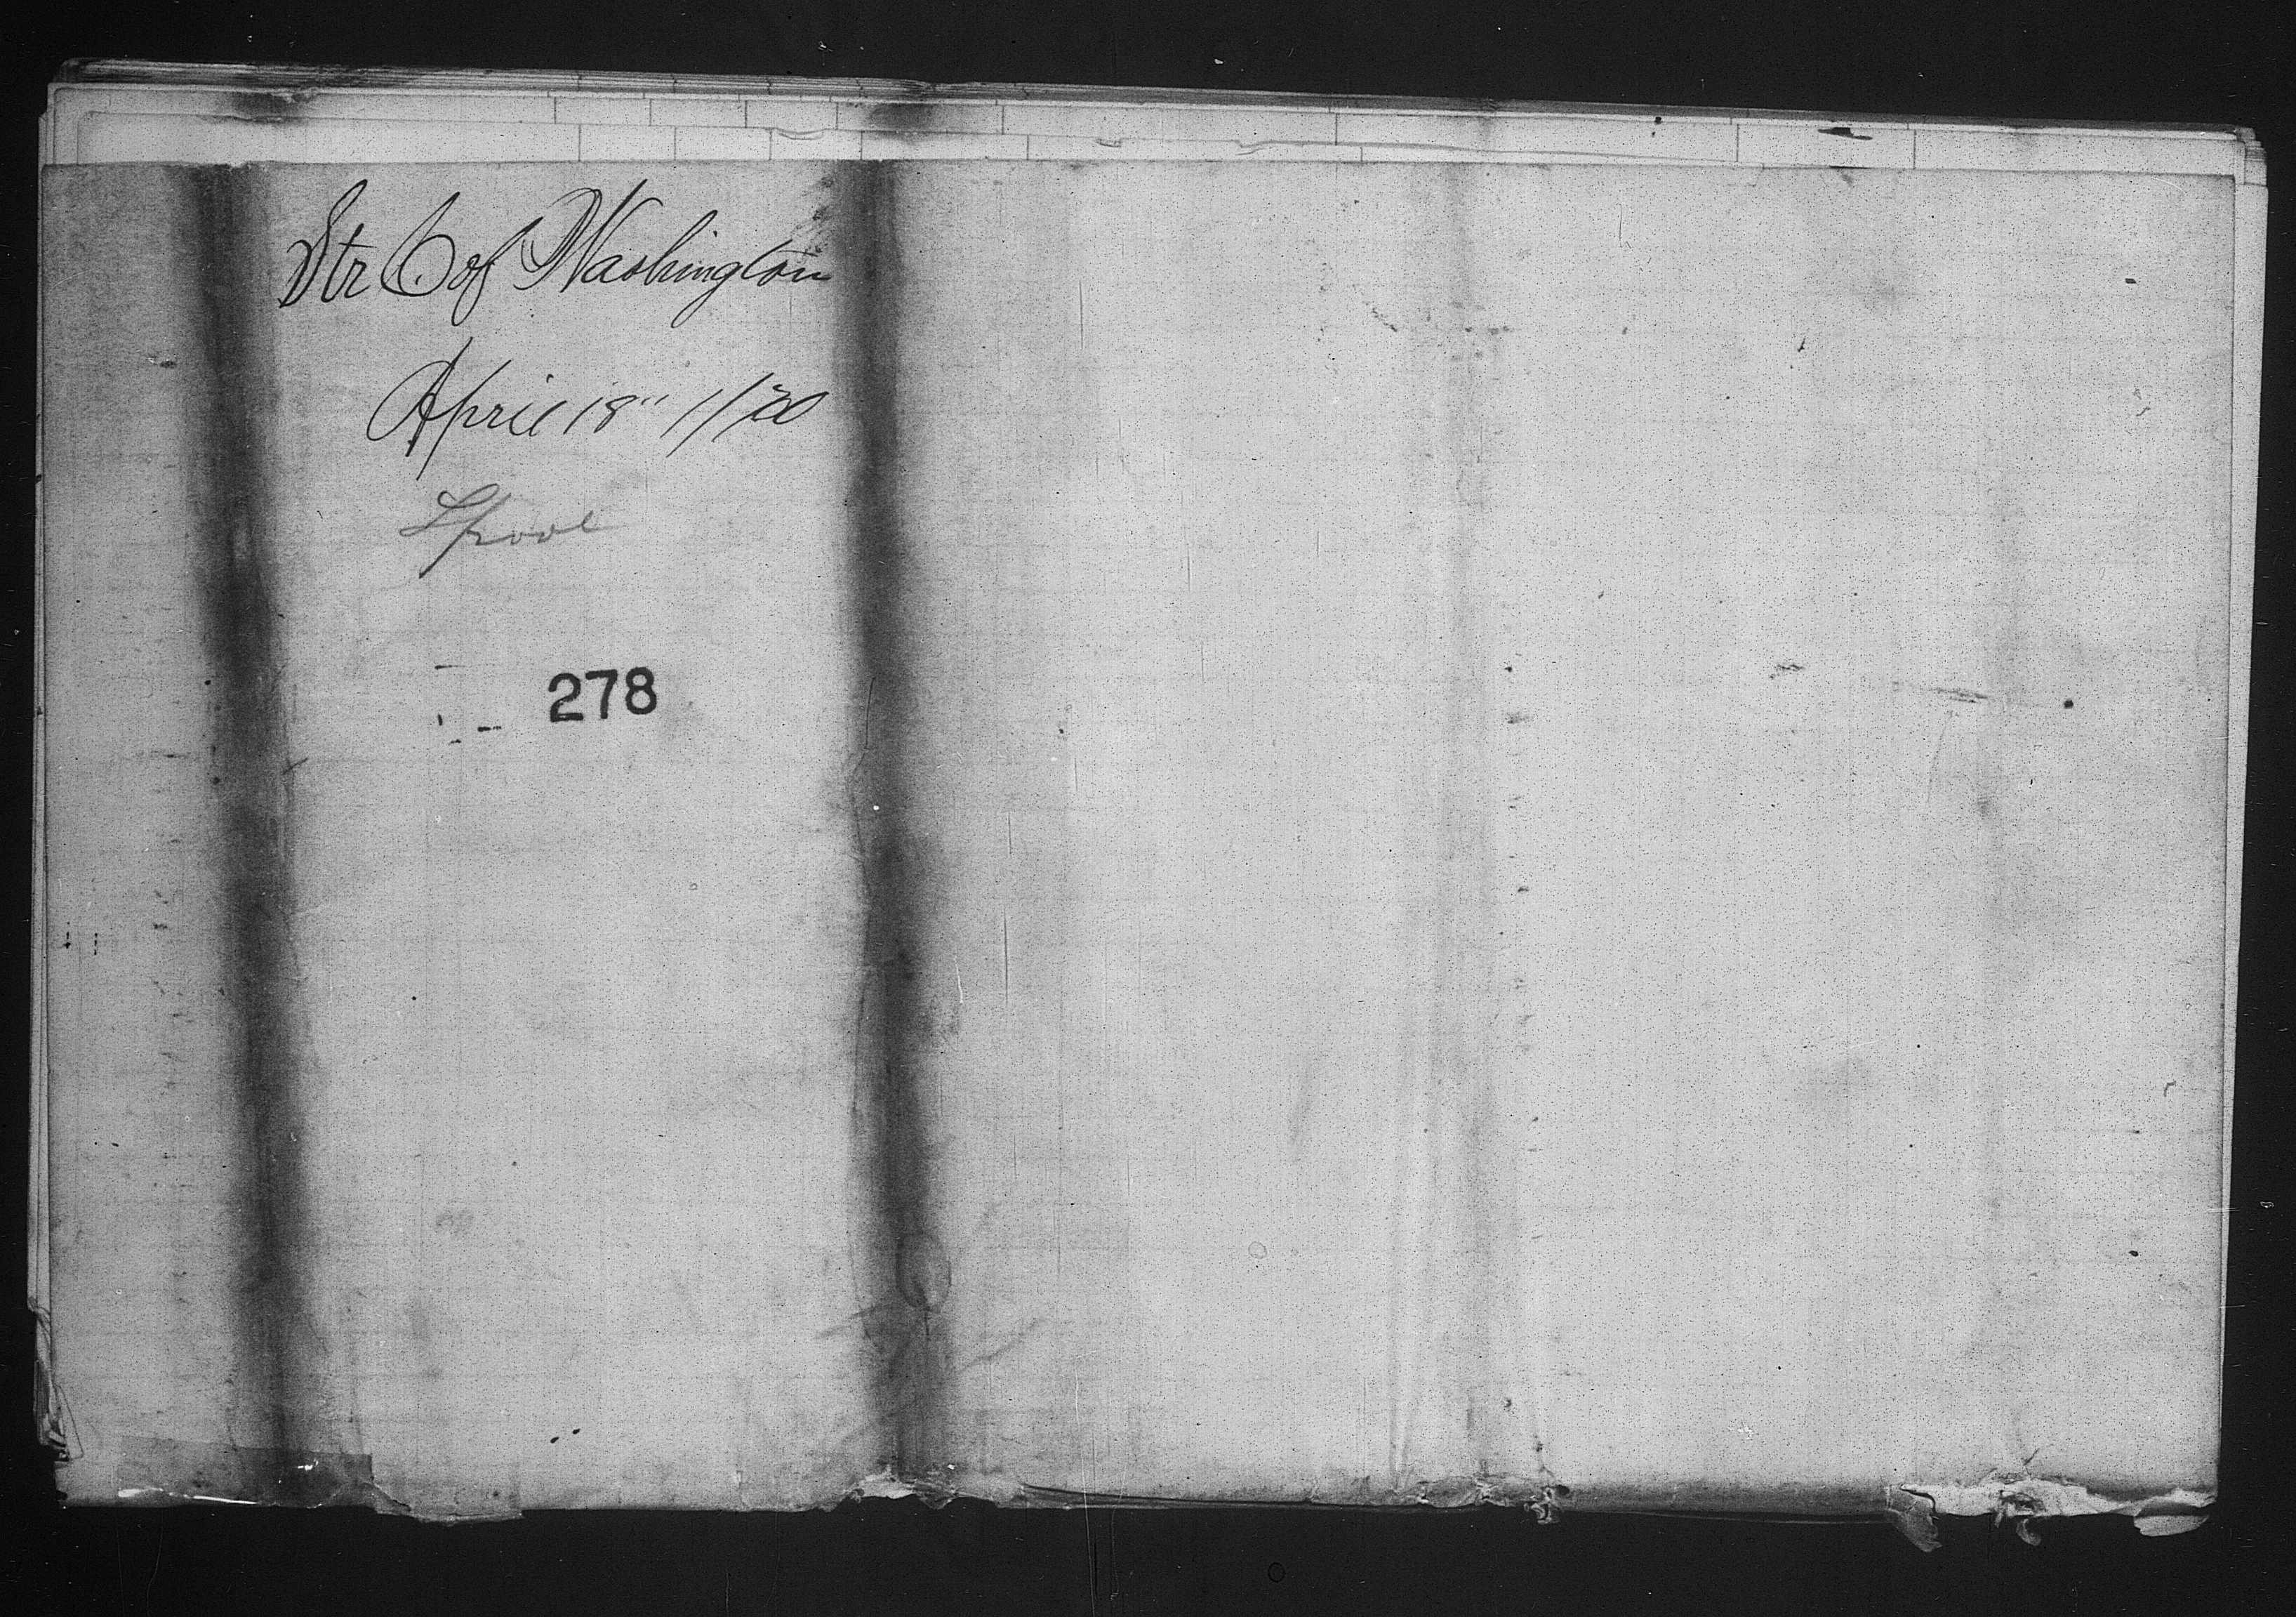 Str C of Washington
April 18"
Lpool
278